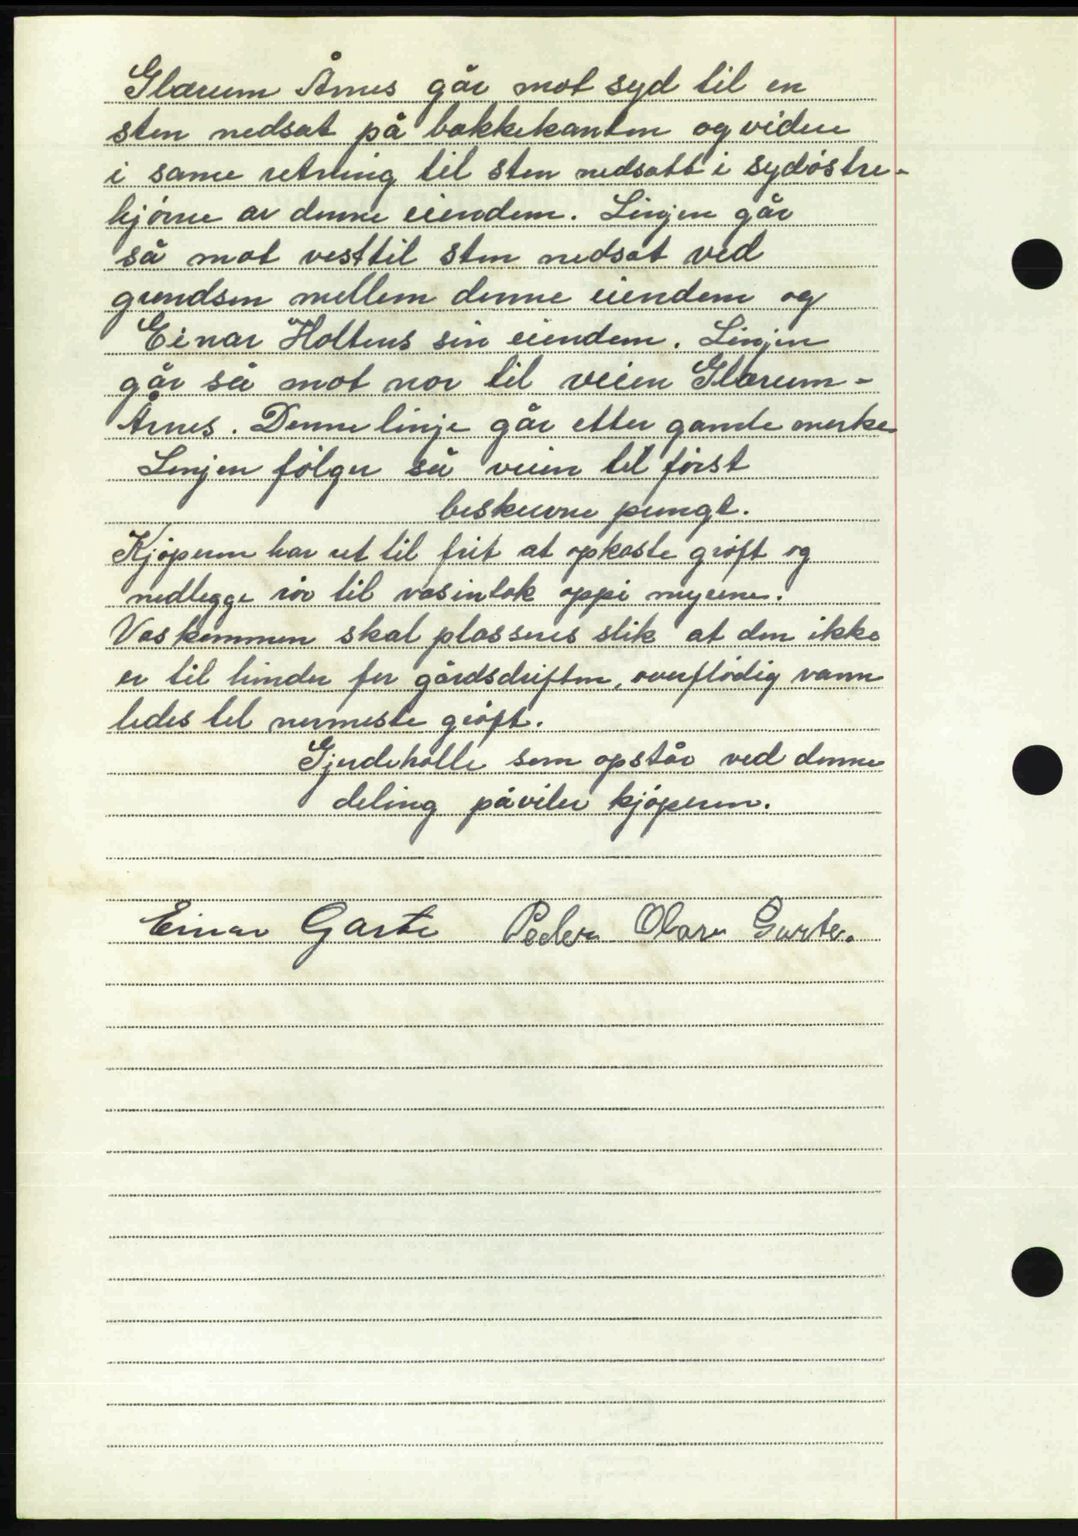 Glærum Årnes går mot syd til en
sten nedsat på bakkekanten og videre
i same retning til sten nedsatt i sydöstre-
hjörne av denne eiendem. Linjen går
så mot vest til sten nedsat ved
grendsen mellem denne eiendem og
Einar Holtens sin eiendem. Linjen
går så mot nor til veien Glærum-
Årnes. Denne linje går etter gamle merke
Linjen fölger så veien til först
beskrevne pungt.
Kjöperen har ret til frit at opkaste gröft og
nedlegge rör til vasintak oppi myrene.
Vaskummen skal plasseres slik at den ikke
er til hinder for gårdsdriften, overflödig vann
ledes til nermeste gröft.
Gjerdeholle som opstår ved denne
deling påviler kjöperen.
Einar Garte Peder Olav Garte.